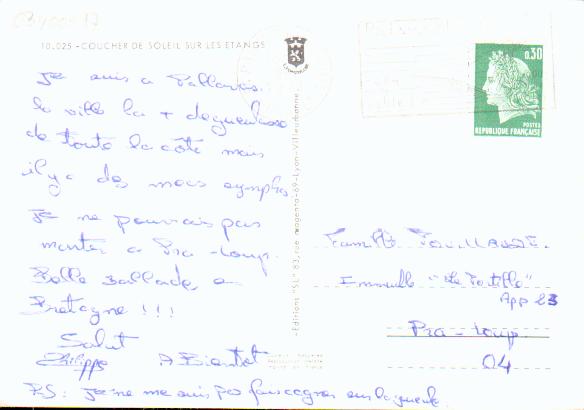 10.025 - COUCHER DE SOLEIL SUR LES ETANGS
0,30
POSTES
REPUBLIQUE FRANÇAISE
Je suis a Palavas.
la ville la + degueulasse
de toute la côte mais
il y a des mecs sympas
Je ne pouvais pas
monter a Pra-Loup.
Belle Ballade, en
Bretagne !!!
Salut
A Bientot
Philippe
PS: Je ne me suis pas fais cogner sur la gueule.
- Editions "SL" 83, rue magenta - 69 - Lyon-Villeurbanne.
Famille
Immeuble "Le
App 23
Pra-Loup
04